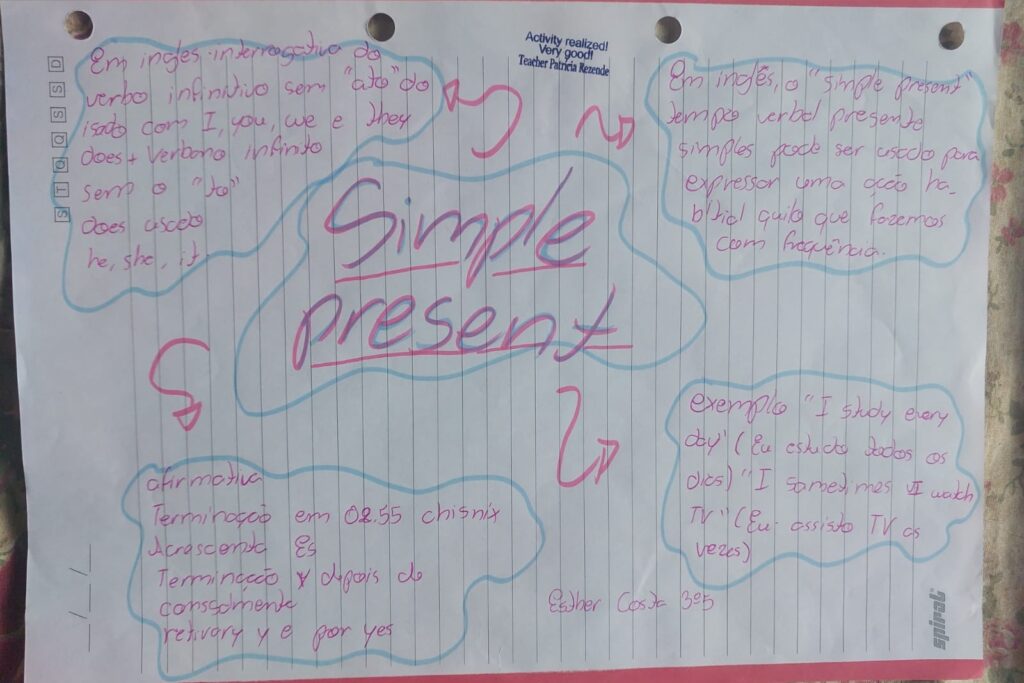 Activity realized!
Very good!
Teacher Patricia Rezende
D
S
S
Q
Q
T
S
Em ingles interrogativa do
verbo infinitivo sem "ato" do
isado com I, you, we e they
does + verbono infinito
sem o "to"
does usado
he, she, it.
Simple
present
Em inglês, o "simple present"
tempo verbal presente
simples pode ser usado para
expressar uma ação ha-
bitial quilo que fazemos
com frequência.
afirmativa
Terminação em chisnix
Acrescenta Es
Terminação y depois de
retirary y e por yes
exemplo "I study every
day" (Eu estudo todos os
dias) "I sametimes I watch
TV" (Eu assisto TV as
vezes)
Esther Costa 3º5
spiral
__/__/__